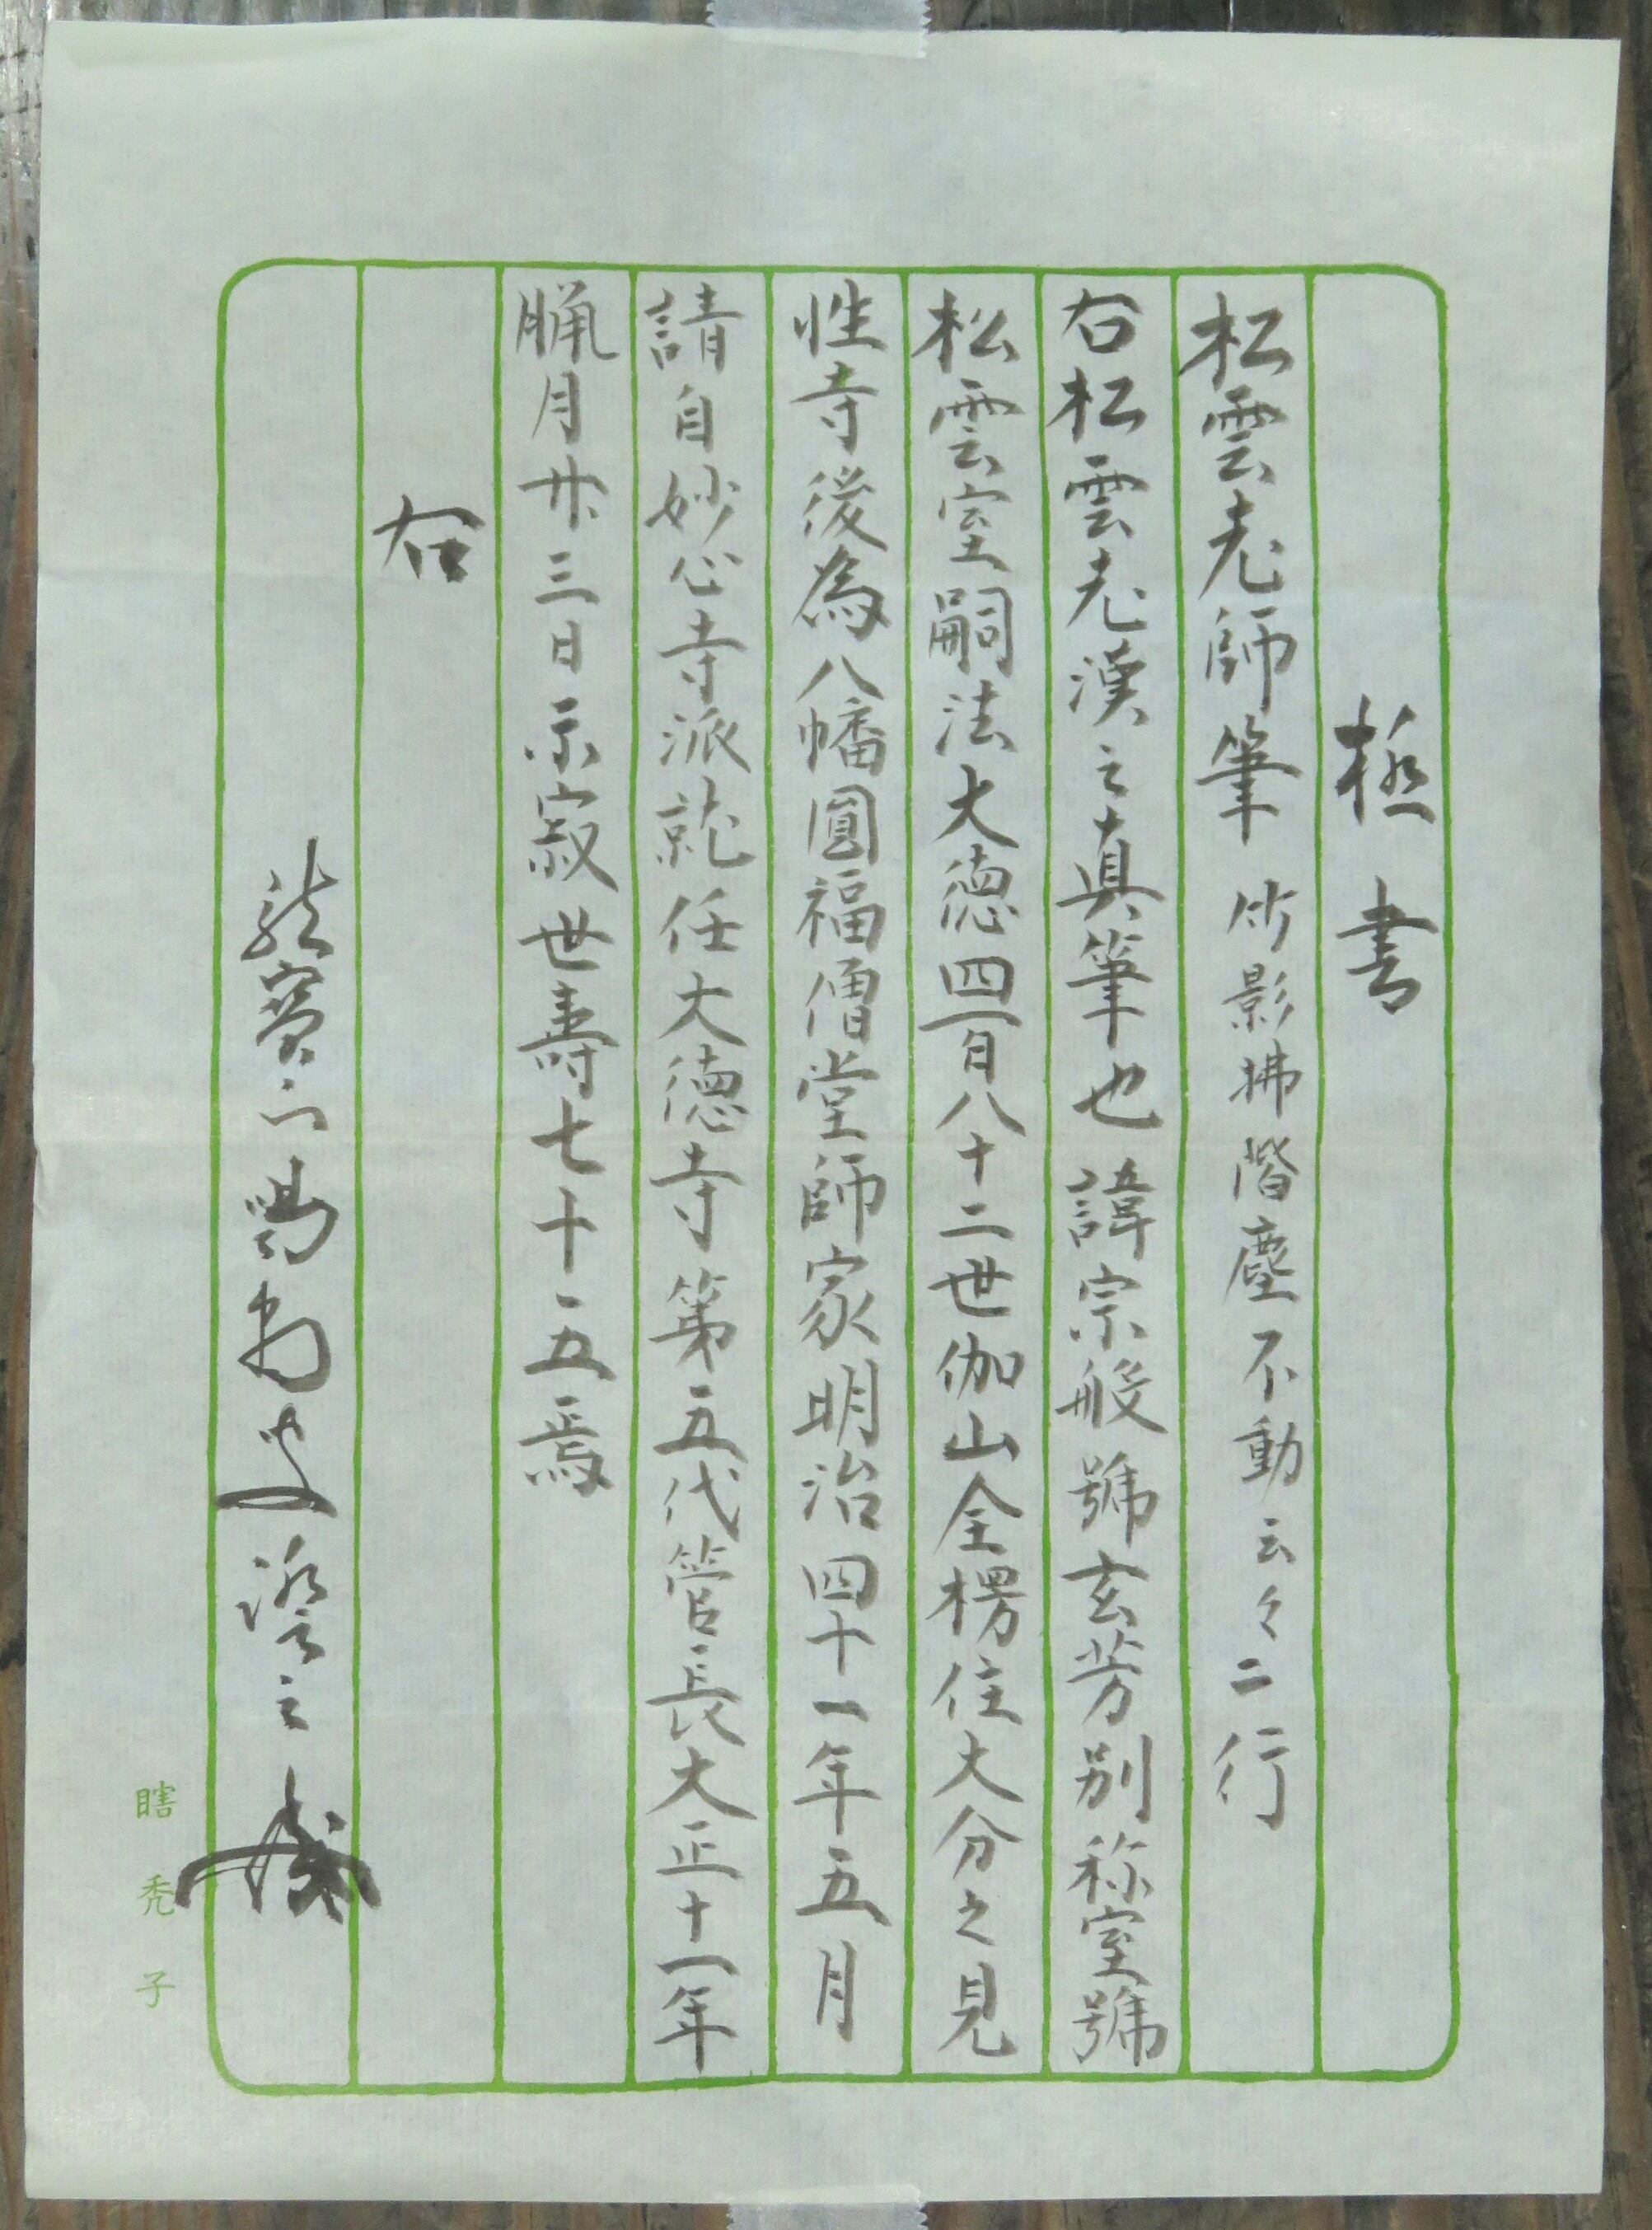 極書
松雲老師筆 竹影拂階塵不動云々二行
右松雲老漢之真筆也 諱宗般 號玄芳別称室號
松雲室嗣法大徳四百八十二世伽山全楞住大分之見
性寺後為八幡圓福僧堂師家明治四十一年五月
請自妙心寺派就任大徳寺第五代管長大正十一年
臘月廾三日示寂世壽七十五焉
右
瞎禿子